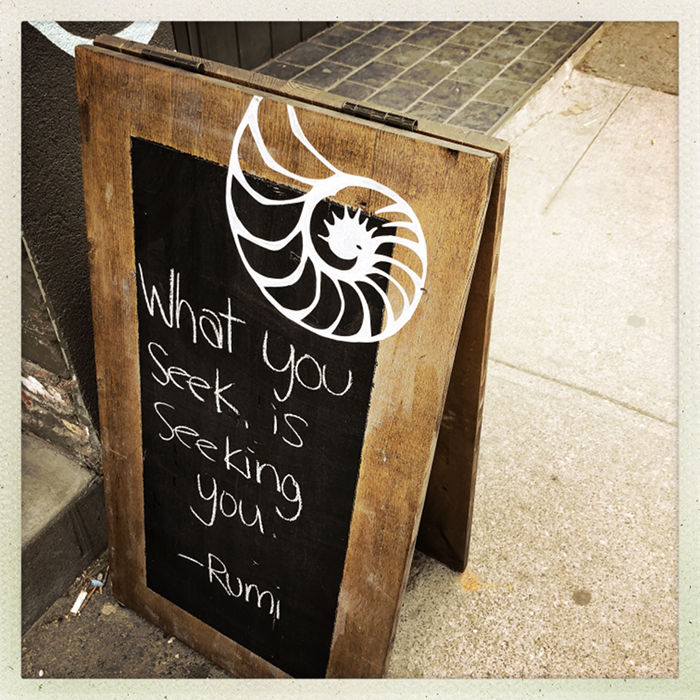 What you
Seek, is
Seeking
you.
-Rumi